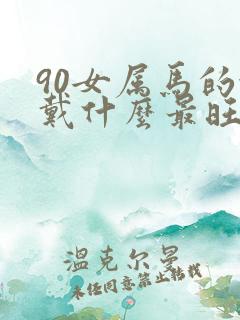 90女属马的
戴什麼最旺
温克尔曼
未经同意禁止转载